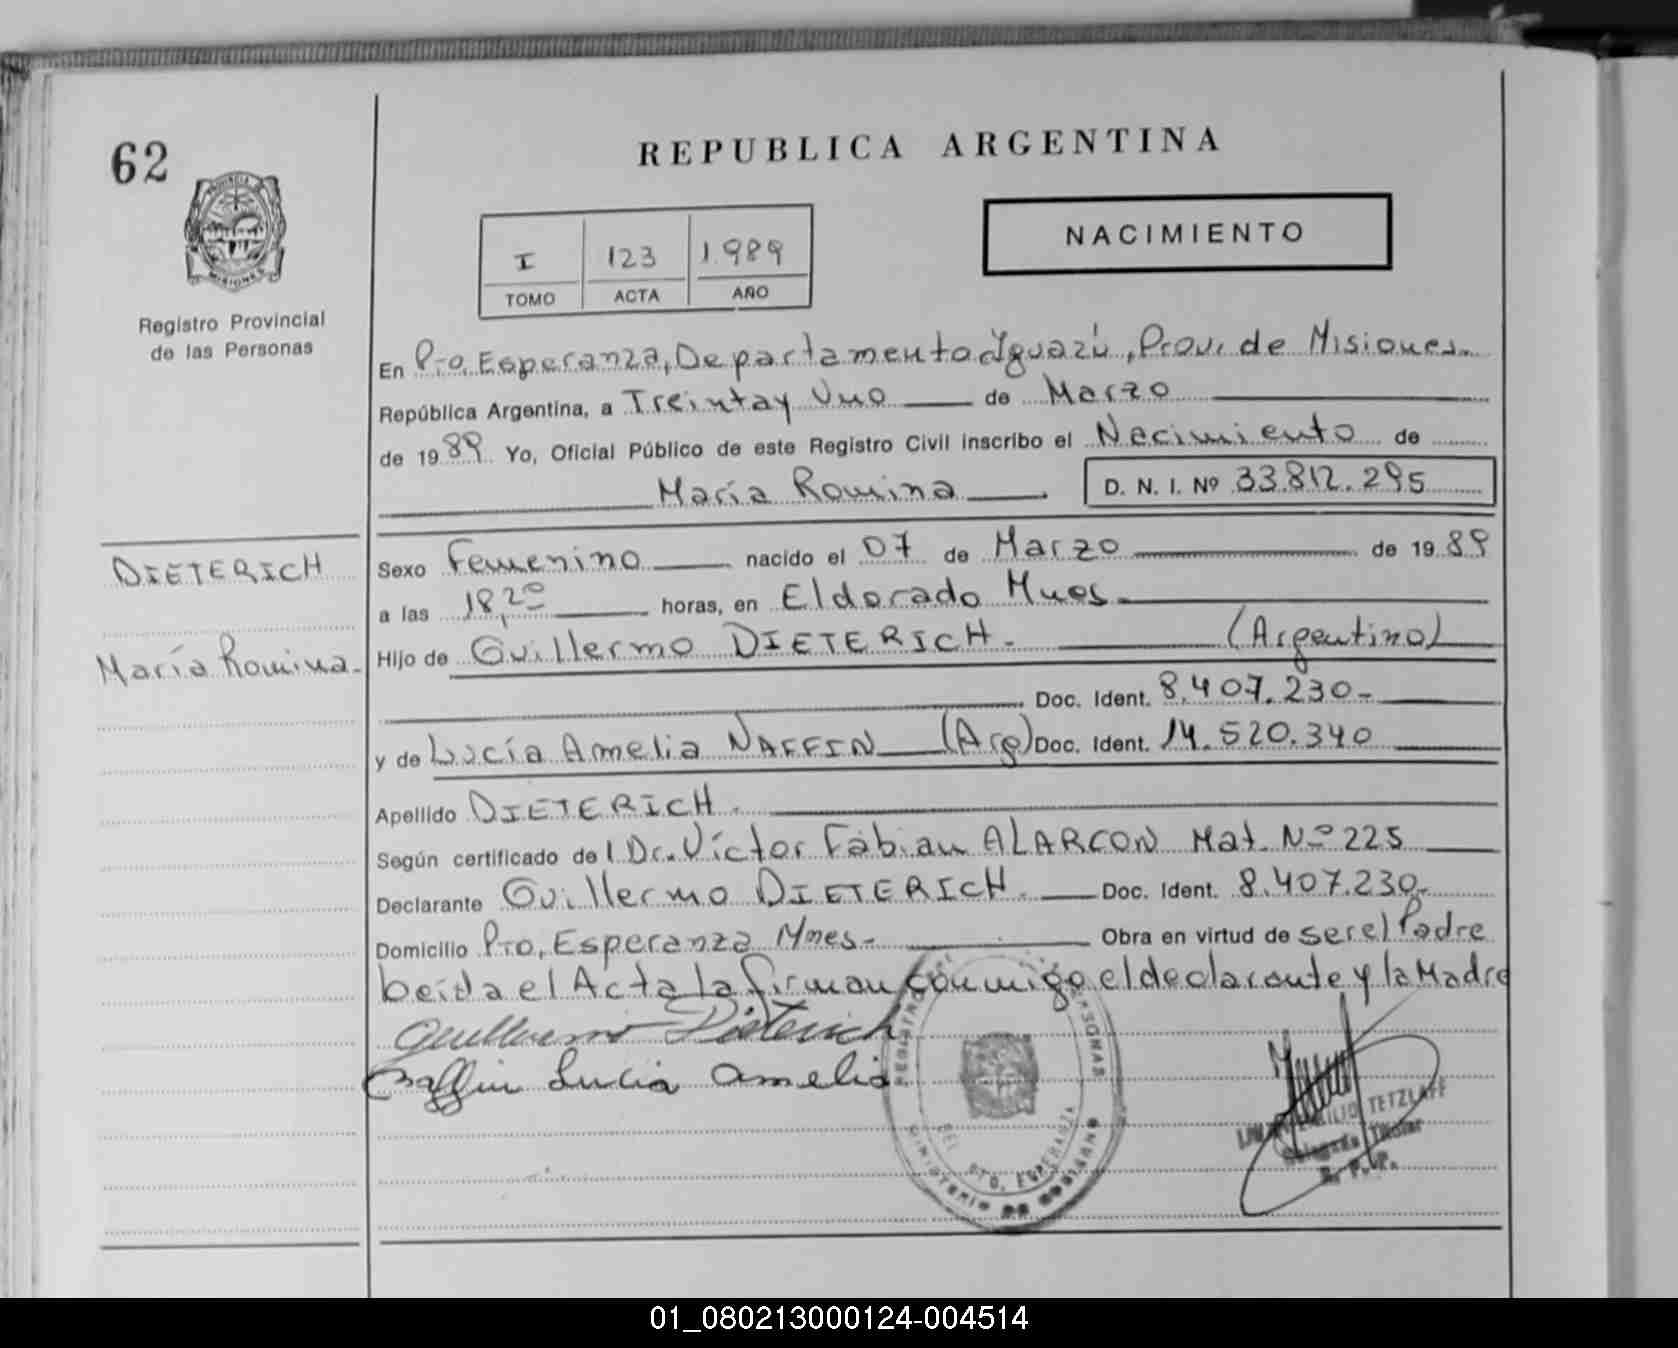 62
REPUBLICA ARGENTINA
PROVINCIA DE
MISIONES
Registro Provincial
de las Personas
I 123 1.989
TOMO ACTA AÑO
NACIMIENTO
En Pto. Esperanza, Departamento Iguazú, Prov. de Misiones.
República Argentina, a Treinta y Uno de Marzo
de 1989. Yo, Oficial Público de este Registro Civil inscribo el Nacimiento de
María Romina D. N. I. Nº 33.812.295
DIETERICH
María Romina.
Sexo Femenino nacido el 07 de Marzo de 1989
a las 18,20 horas, en Eldorado Mnes.
Hijo de Guillermo DIETERICH. (Argentino)
Doc. Ident. 8.407.230-
y de Lucía Amelia NAFFIN (Arg) Doc. Ident. 14.520.340
Apellido DIETERICH.
Según certificado del Dr. Víctor Fabian ALARCON Mat. Nº 225
Declarante Guillermo DIETERICH. Doc. Ident. 8.407.230-
Domicilio Pto. Esperanza Mnes- Obra en virtud de ser el Padre
Leída el Acta la firman conmigo el declarante y la Madre
Guillermo Dieterich
Naffin Lucia Amelia
REGISTRO PERSONAS
DEL PTO. ESPERANZA
MINISTERIO DE GOBIERNO
EMILIO TETZLAFF
Delegado Titular
R. P. P.
01_080213000124-004514